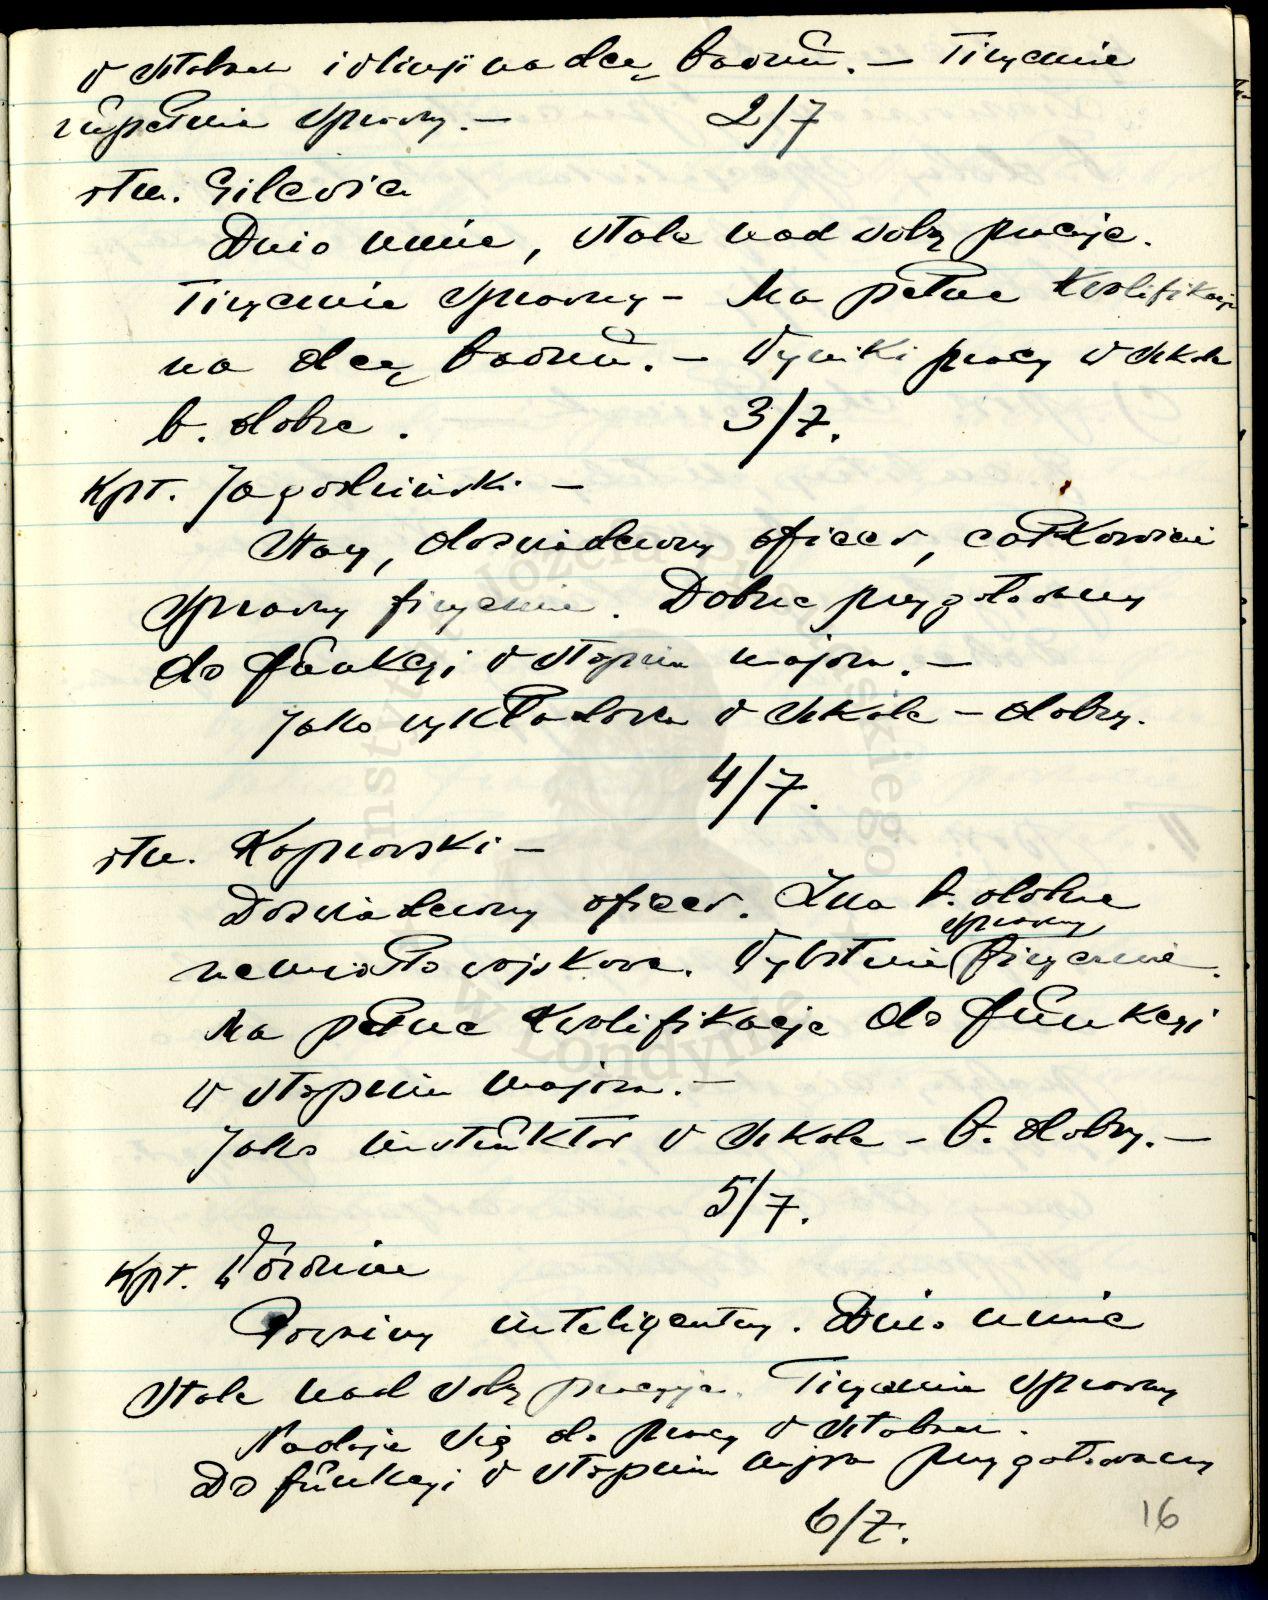 w sztabach i w linji na dcę baonu. — Fizycznie
zupełnie sprawny. — 2/7
rtm. Gilewicz
Dużo umie, stale nad sobą pracuje.
Fizycznie sprawny — Ma pełne kwalifikacje
na dcę baonu. — Wyniki pracy w szkole
b. dobre. 3/7.
kpt. Jagodziński. —
Stary, doświadczony oficer, całkowicie
sprawny fizycznie. Dobrze przygotowany
do funkcji w stopniu majora. —
Jako wykładowca w szkole — dobry.
4/7.
rtm. Koprowski —
Doświadczony oficer. Zna b. dobrze
rzemiosło wojskowe. Wybitnie sprawny fizycznie.
Ma pełne kwalifikacje do funkcji
w stopniu majora. —
Jako instruktor w szkole — b. dobry. —
5/7.
kpt.
Poważny inteligentny. Dużo umie
Stale nad sobą pracuje. Fizycznie sprawny
Nadaje się do pracy w sztabach.
Do funkcji w stopniu majora przygotowany
6/7.
16
Instytut Józefa Piłsudskiego
w Londynie